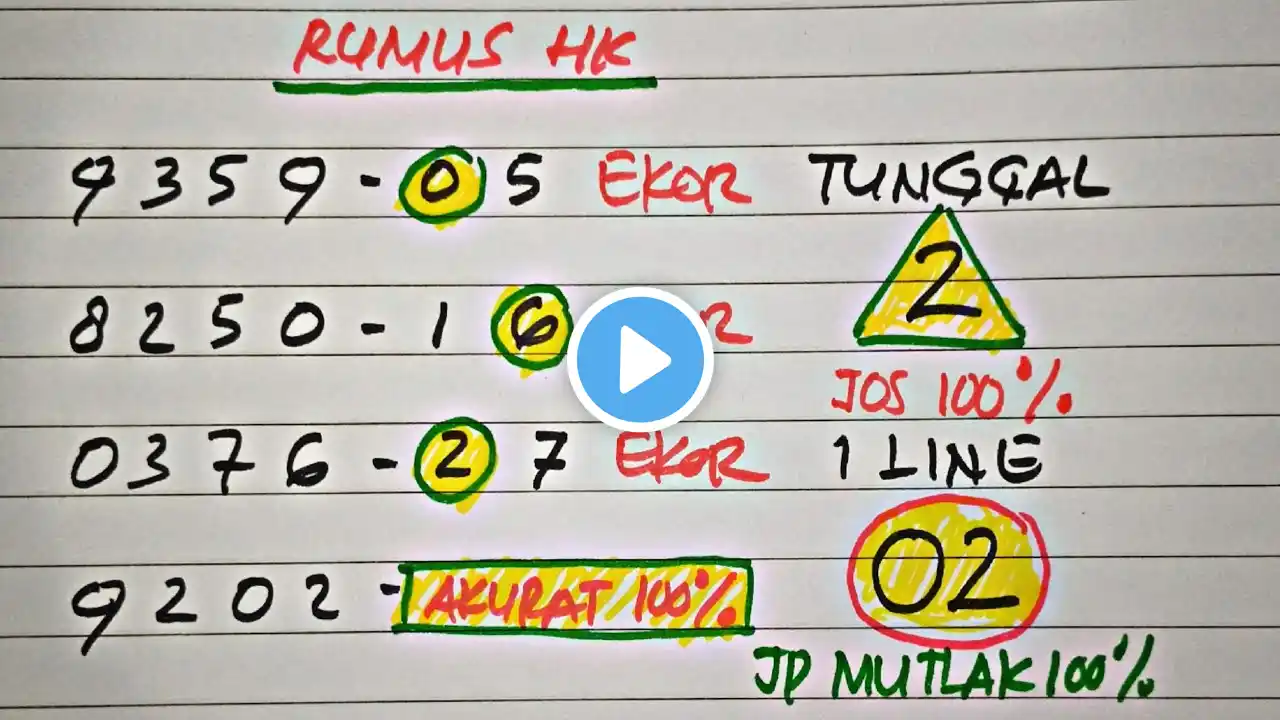 RUMUS HK
9359 - 05 EKOR TUNGGAL
2
8250 - 16
JOS 100%
0376 - 27 EKOR 1 LINE
02
9202 - AKURAT 100%
JP MUTLAK 100%